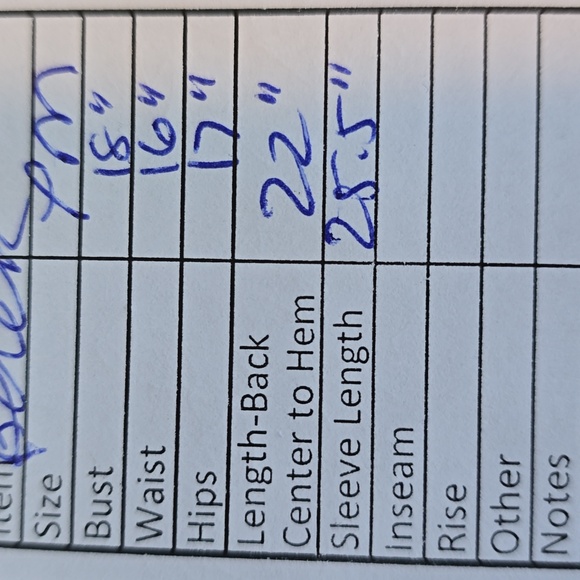 Item
Size PM
Bust 18"
Waist 16"
Hips 17"
Length-Back
Center to Hem 22"
Sleeve Length 25.5"
Inseam
Rise
Other
Notes